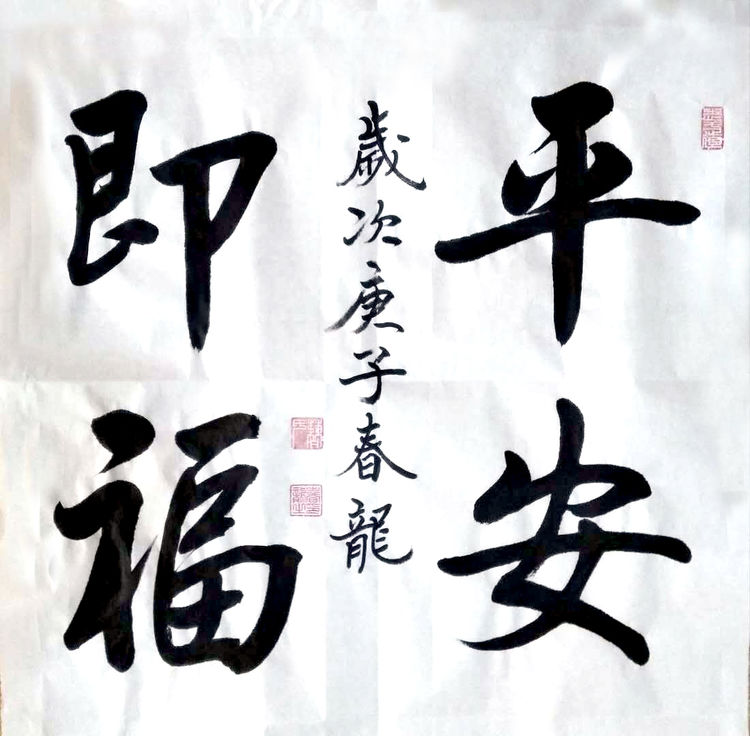 平安
即福
歲次庚子春龍